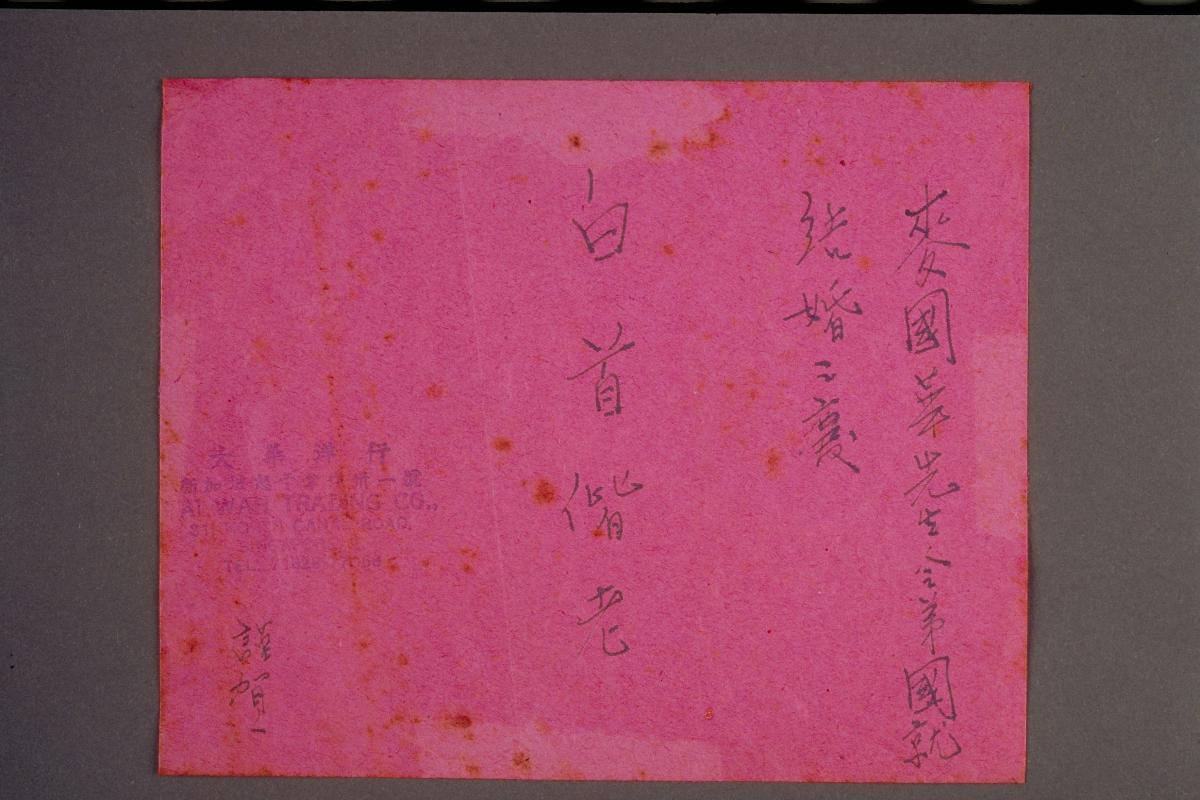 麥國華先生令弟國就
結婚之慶
白首偕老
大華洋行
AI WAH TRADING CO.,
CANAL ROAD,
謹賀